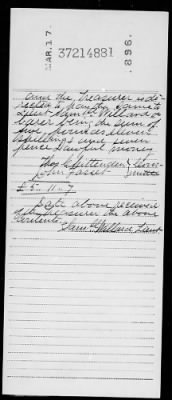 MAR. 17.
37214881
.896.
and the Treasurer is di-
rected to pay the same to
Lieut. Saml. Willard or
bearer being the sum of
five pounds eleven
shillings and seven
pence Lawful money
Thos Chittenden
John Fasset
£5-11-7
Date above received
of the Treasurer the above
contents
Saml. Willard Lieut